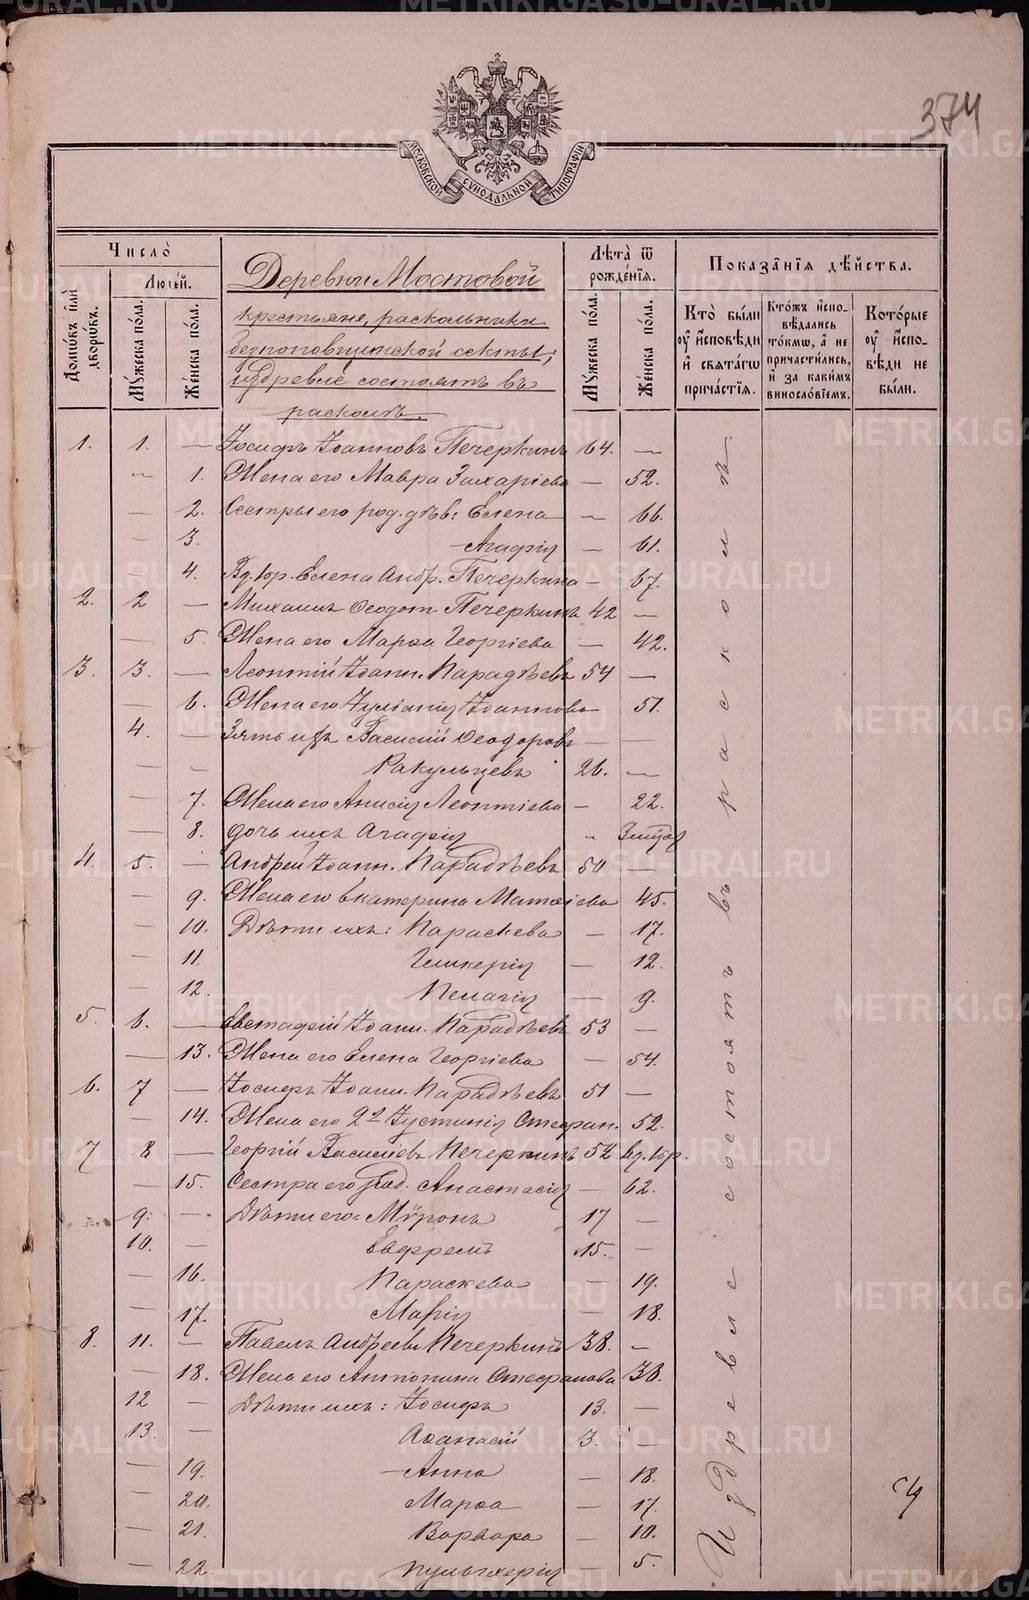 374
МОСКОВСКОЙ СУНОДАЛЬНОЙ ТИПОГРАФІИ
Число̀
Люде́й.
Домѡ́въ и҆лѝ дворѡ́въ.
Му́жеска по́ла.
Же́нска по́ла.
Деревни Мостовой
крестьяне, раскольники
безпоповщинской секты,
издревле состоятъ въ
расколѣ.
Лѣта̀ ѿ рожде́нїѧ.
Му́жеска по́ла.
Же́нска по́ла.
Показа̑нїѧ дѣ́йства.
Кто̀ бы́ли оу҆ и҆́сповѣди и҆ свѧта́гѡ прича́стїѧ.
Кто́жъ и҆спо-вѣ́дались то́кмѡ, а҆ не причасти́лись, и҆ за каки́мъ винosло́вїемъ.
Кото́рые оу҆ и҆́спо-вѣди не бы́ли.
1. 1. — Іосифъ Іоанновъ Печеркинъ 64. —
— 1. Жена его Мавра Захаріева — 52.
— 2. Сестры его род. дѣв: Елена — 66.
— 3. Агафія — 61.
— 4. Вд. кр. Елена Андр. Печеркина — 67.
2. 2 — Михаилъ Ѳеодот. Печеркинъ 42 —
— 5. Жена его Марѳа Георгіева — 42.
3. 3. — Леонтій Іоанн. Карадѣевъ 54 —
— 6. Жена его Іуліанія Іоаннова 51.
4. — Зять ихъ Василій Ѳеодоровъ — —
— — Ракульцевъ 26. —
— 7. Жена его Анисія Леонтіева — 22.
— 8. Дочь ихъ Агафія
4. 5. — Андрей Іоанн. Карадѣевъ 50 —
— 9. Жена его Екатерина Матѳіева 45.
— 10. Дѣти ихъ: Параскева — 17.
— 11. Гликерія — 12.
— 12. Пелагія — 9.
5. 6. — Евстафій Іоанн. Карадѣевъ 53 —
— 13. Жена его Елена Георгіева — 54.
6. 7 — Іосифъ Іоанн. Карадѣевъ 51 —
— 14. Жена его 2я Іустинія Стефан. 52.
7 8 — Георгій Василіевъ Печеркинъ 52 вд. кр.
— 15. Сестра его род. Анастасія — 62.
9. — Дѣти его: Мѵронъ 17 —
10. — Евфремъ 15. —
— 16. Параскева — 19.
— 17. Марія — 18.
8. 11. — Павелъ Андреевъ Печеркинъ 38. —
— 18. Жена его Антонина Стефанова 38.
12 — Дѣти ихъ: Іосифъ 13. —
13. — Аѳанасій 3. —
— 19. Анна — 18.
— 20. Марѳа — 17.
— 21. Варвара — 10.
— 22. Пульхерія — 5.
Издревле состоятъ въ расколѣ.
METRIKI.GASO-URAL.RU